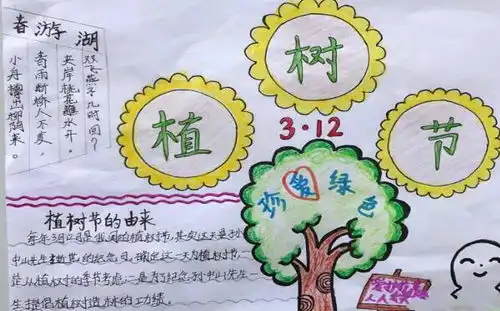 春游湖
双飞燕子几时回?
夹岸桃花蘸水开。
春雨断桥人不度,
小舟撑出柳阴来。
植树节
3·12
爱绿色
植树节的由来
每年3月12日是我国的植树节,其实这天是孙
中山先生逝世的纪念日。
是从植树的季节考虑,二是为了纪念孙中山先生
生提倡植树造林的功绩。
人人有责